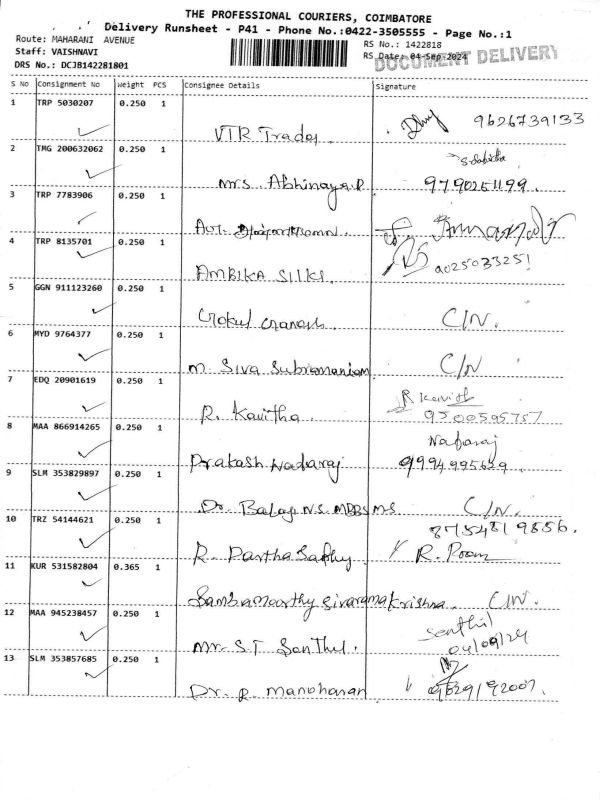 THE PROFESSIONAL COURIERS, COIMBATORE
Delivery Runsheet - P41 - Phone No.:0422-3505555 - Page No.:1
Route: MAHARANI AVENUE
RS No.: 1422818
Staff: VAISHNAVI
RS Date: 04-Sep-2024
DOCUMENT DELIVERY
DRS No.: DCJB142281801
S No Consignment No Weight PCS Consignee Details Signature
1 TRP 5030207 0.250 1
VTR Trades 9626739133
2 TMG 200632062 0.250 1
Mrs. Abhinaya.P 9790251199.
3 TRP 7783906 0.250 1
4 TRP 8135701 0.250 1
AMBIKA SILKS. 9025033251
5 GGN 911123260 0.250 1
Gokul Ganesh C/N.
6 MYD 9764377 0.250 1
M. Siva Subramaniam C/N
7 EDQ 20901619 0.250 1
R Kavith
R. Kavitha 9500595757
8 MAA 866914265 0.250 1
Nataraj
Prakash Nadaraj 9994995639.
9 SLM 353829897 0.250 1
Dr Balaji N.S. MBBS MS C/N.
10 TRZ 54144621 0.250 1
8754819856.
R. Partha Sathy R. Poom
11 KUR 531582804 0.365 1
Sambamoorthy Sivaramakrishna. C/N.
12 MAA 945238457 0.250 1
Senthil
Mr. S.T Senthil. 04/09/24
13 SLM 353857685 0.250 1
Dr. R. Manoharan 9629192007.